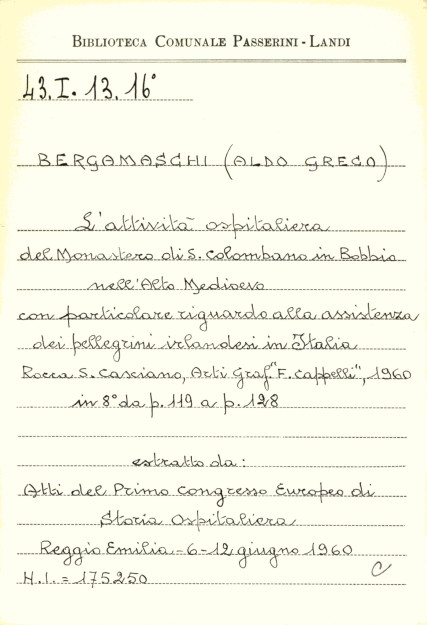 BIBLIOTECA COMUNALE PASSERINI - LANDI
43. I. 13. 16°
BERGAMASCHI (ALDO GRECO)
L'attività ospitaliera
del Monastero di S. Colombano in Bobbio
nell'Alto Medioevo
con particolare riguardo alla assistenza
dei pellegrini irlandesi in Italia
Rocca S. Casciano, Arti Graf. "F. Cappelli", 1960
in 8° da p. 119 a p. 128
estratto da:
Atti del Primo Congresso Europeo di
Storia Ospitaliera
Reggio Emilia - 6-12 giugno 1960
H.I. = 175250
C